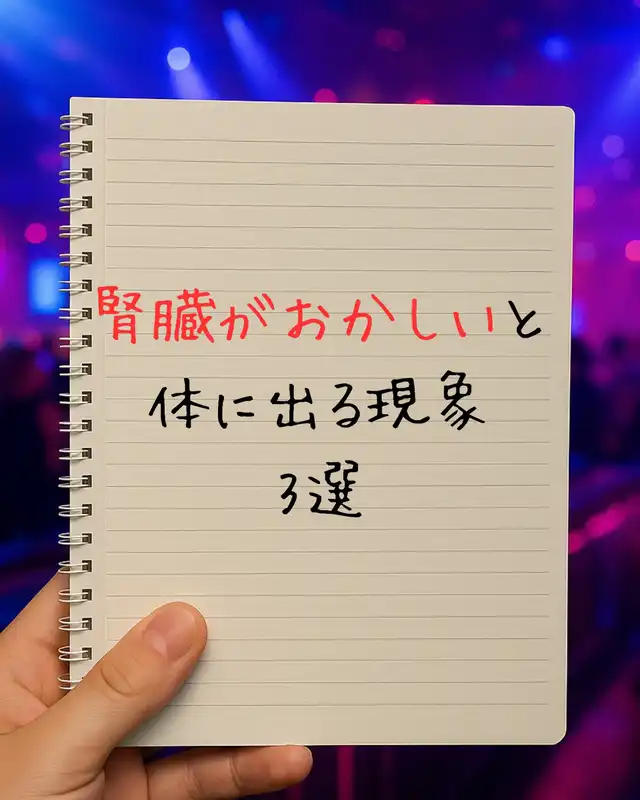 腎臓がおかしいと
体に出る現象
3選